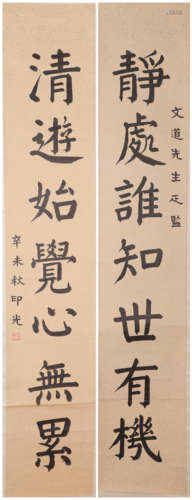 文道先生正鑒
靜處誰知世有機
清遊始覺心無累
辛未秋印光